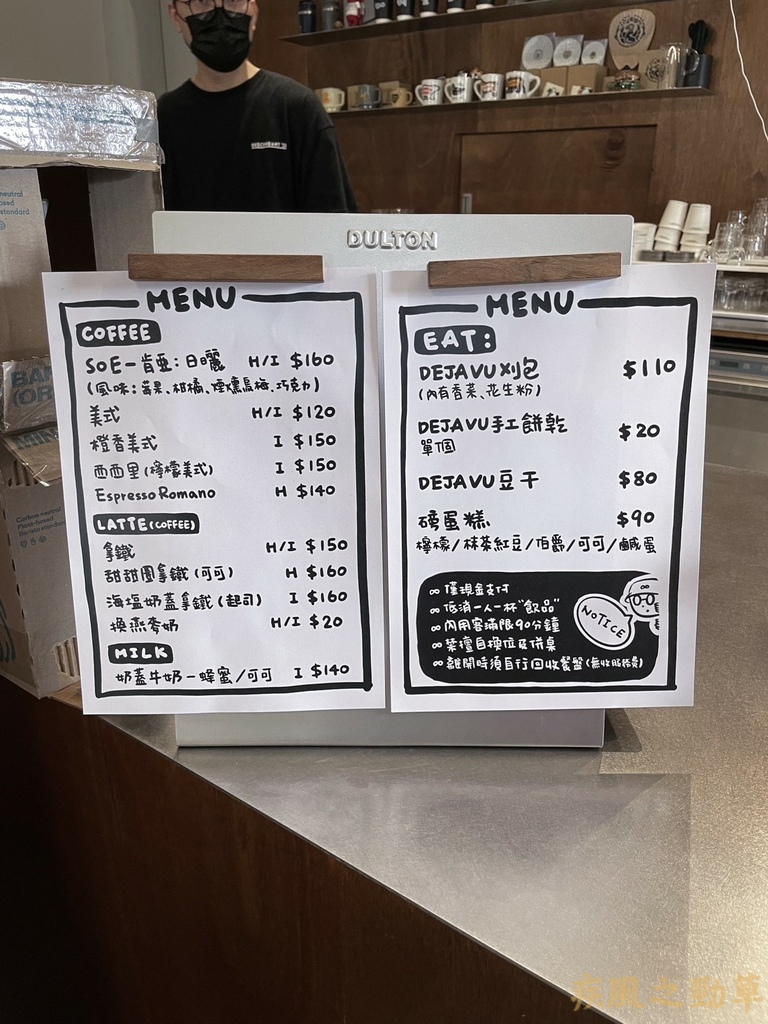 DULTON
MENU
COFFEE
SOE-肯亞:日曬 H/I $160
(風味:莓果、柑橘、煙燻烏梅、巧克力)
美式 H/I $120
橙香美式 I $150
西西里(檸檬美式) I $150
Espresso Romano H $140
LATTE(COFFEE)
拿鐵 H/I $150
甜甜圈拿鐵(可可) H $160
海塩奶蓋拿鐵(起司) I $160
換燕麥奶 H/I $20
MILK
奶蓋牛奶-蜂蜜/可可 I $140
MENU
EAT:
DEJAVU刈包 $110
(內有香菜、花生粉)
DEJAVU手工餅乾 $20
單個
DEJAVU豆干 $80
磅蛋糕 $90
檸檬/抹茶紅豆/伯爵/可可/鹹蛋
∞ 僅現金支付
∞ 低消一人一杯"飲品"
∞ 內用客滿限90分鐘
∞ 禁擅自換位及併桌
∞ 離開時須自行回收餐盤(無收服務費)
NOTICE
neutral
standard
Carbon neutral
Plant-based
Barista standard
疾風之勁草